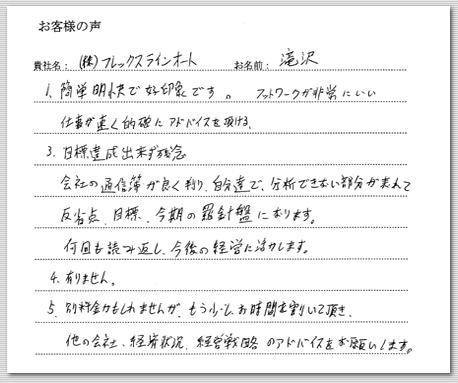 お客様の声
貴社名: (株)フレックスラインオート お名前: 滝沢
1. 簡単明快で好印象です。 フットワークが非常にいい
仕事が速く的確にアドバイスを頂ける。
3. 目標達成出来ず残念
会社の通信簿が良く判り、自分達で、分析できない部分が見えて
反省点、目標、今期の羅針盤になります。
何回も読み返し、今後の経営に活かします。
4. 有りません。
5. 別料金かもしれませんが、もう少し、お時間を割いて頂き、
他の会社、経済状況、経営戦略のアドバイスをお願いします。